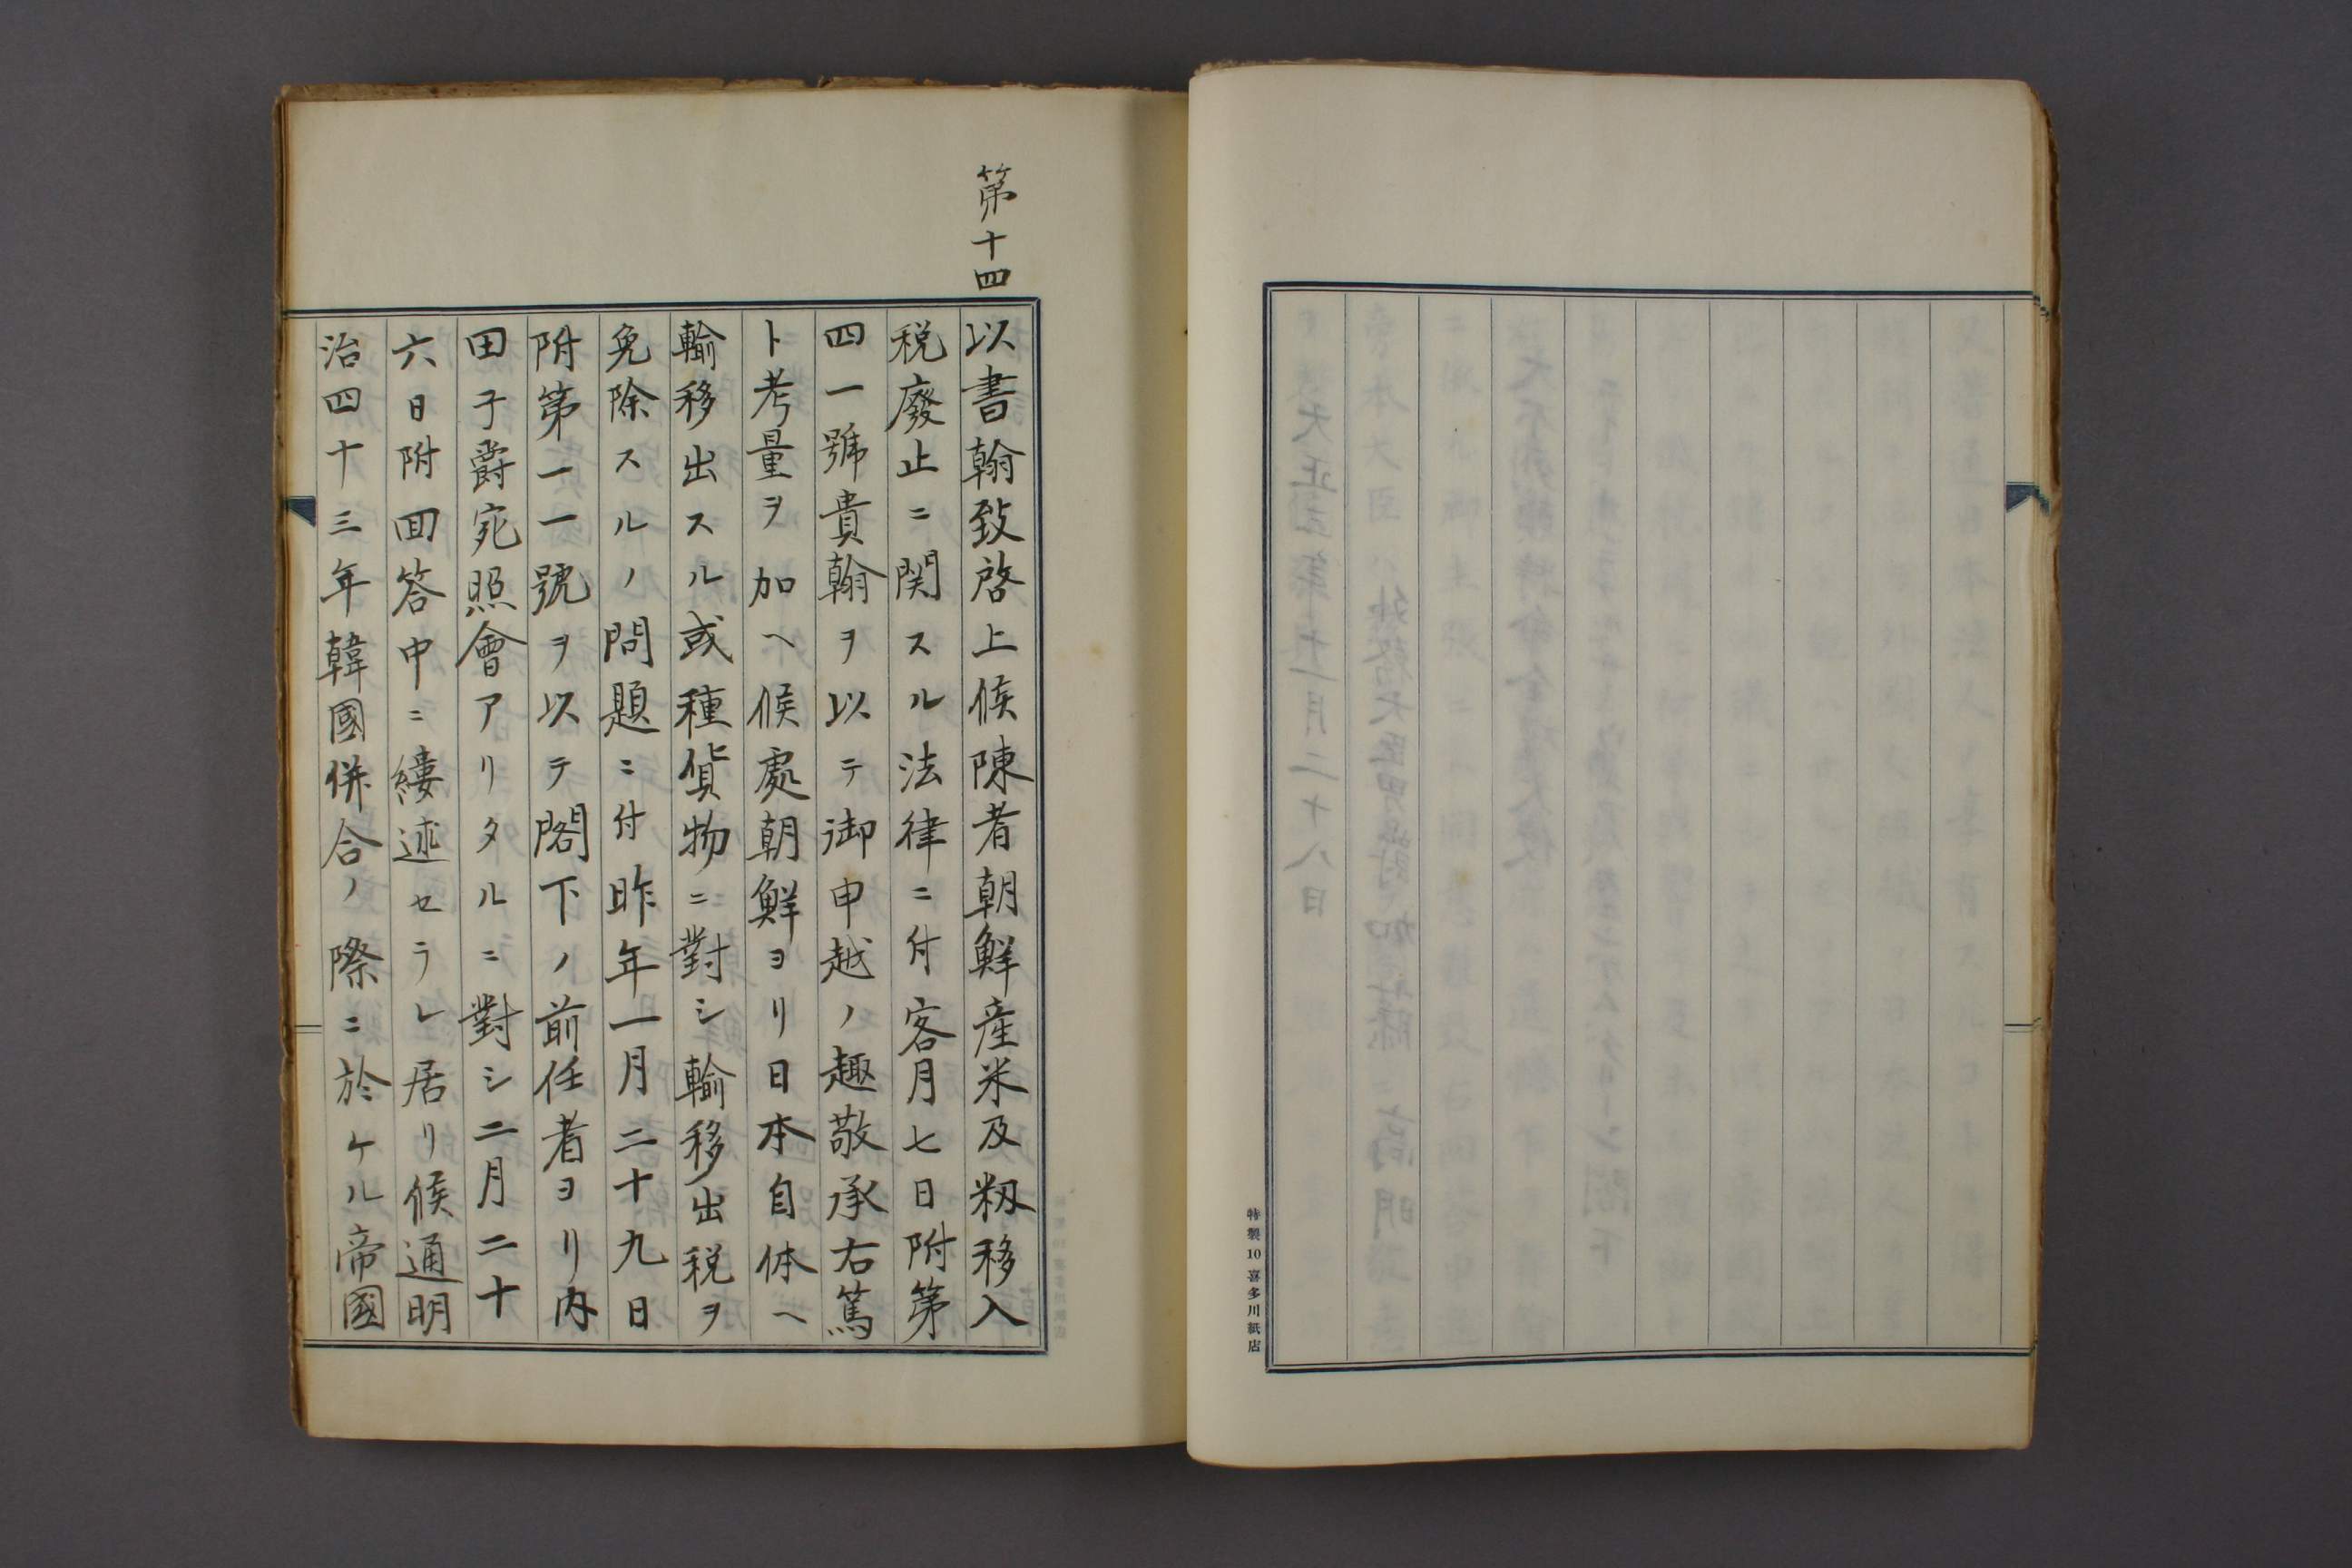 特製10喜多川紙店
第十四
以書翰致啓上候陳者朝鮮産米及籾移入
税廢止ニ関スル法律ニ付客月七日附第
四一號貴翰ヲ以テ御申越ノ趣敬承右篤
ト考量ヲ加ヘ候處朝鮮ヨリ日本自体ヘ
輸移出スル或種貨物ニ對シ輸移出税ヲ
免除スルノ問題ニ付昨年一月二十九日
附第一一號ヲ以テ閣下ノ前任者ヨリ内
田子爵宛照會アリタルニ對シ二月二十
六日附回答中ニ縷述セラレ居リ候通明
治四十三年韓國併合ノ際ニ於ケル帝國